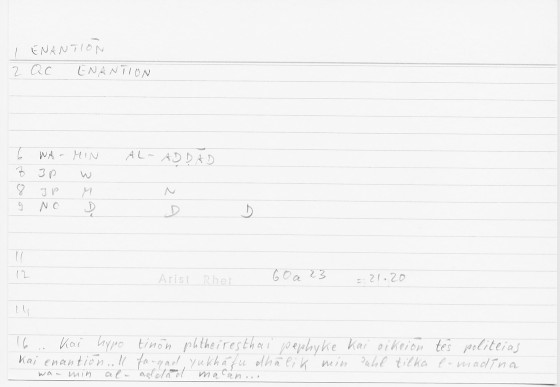 1 ENANTIŌN
2 QC ENANTION
6 WA-MIN AL-AḌDĀD
7 JP W
8 JP M N
9 NO Ḍ D D
11
12 Arist Rhet 60a 23 = 21.20
14
16 .. Kai hypo tinōn phtheiresthai pephyke kai oikeiōn tēs politeias
kai enantiōn.. // fa-qad yukhāfu dhālik min ahl tilka l-madīna
wa-min al-aḍdād maʿan...